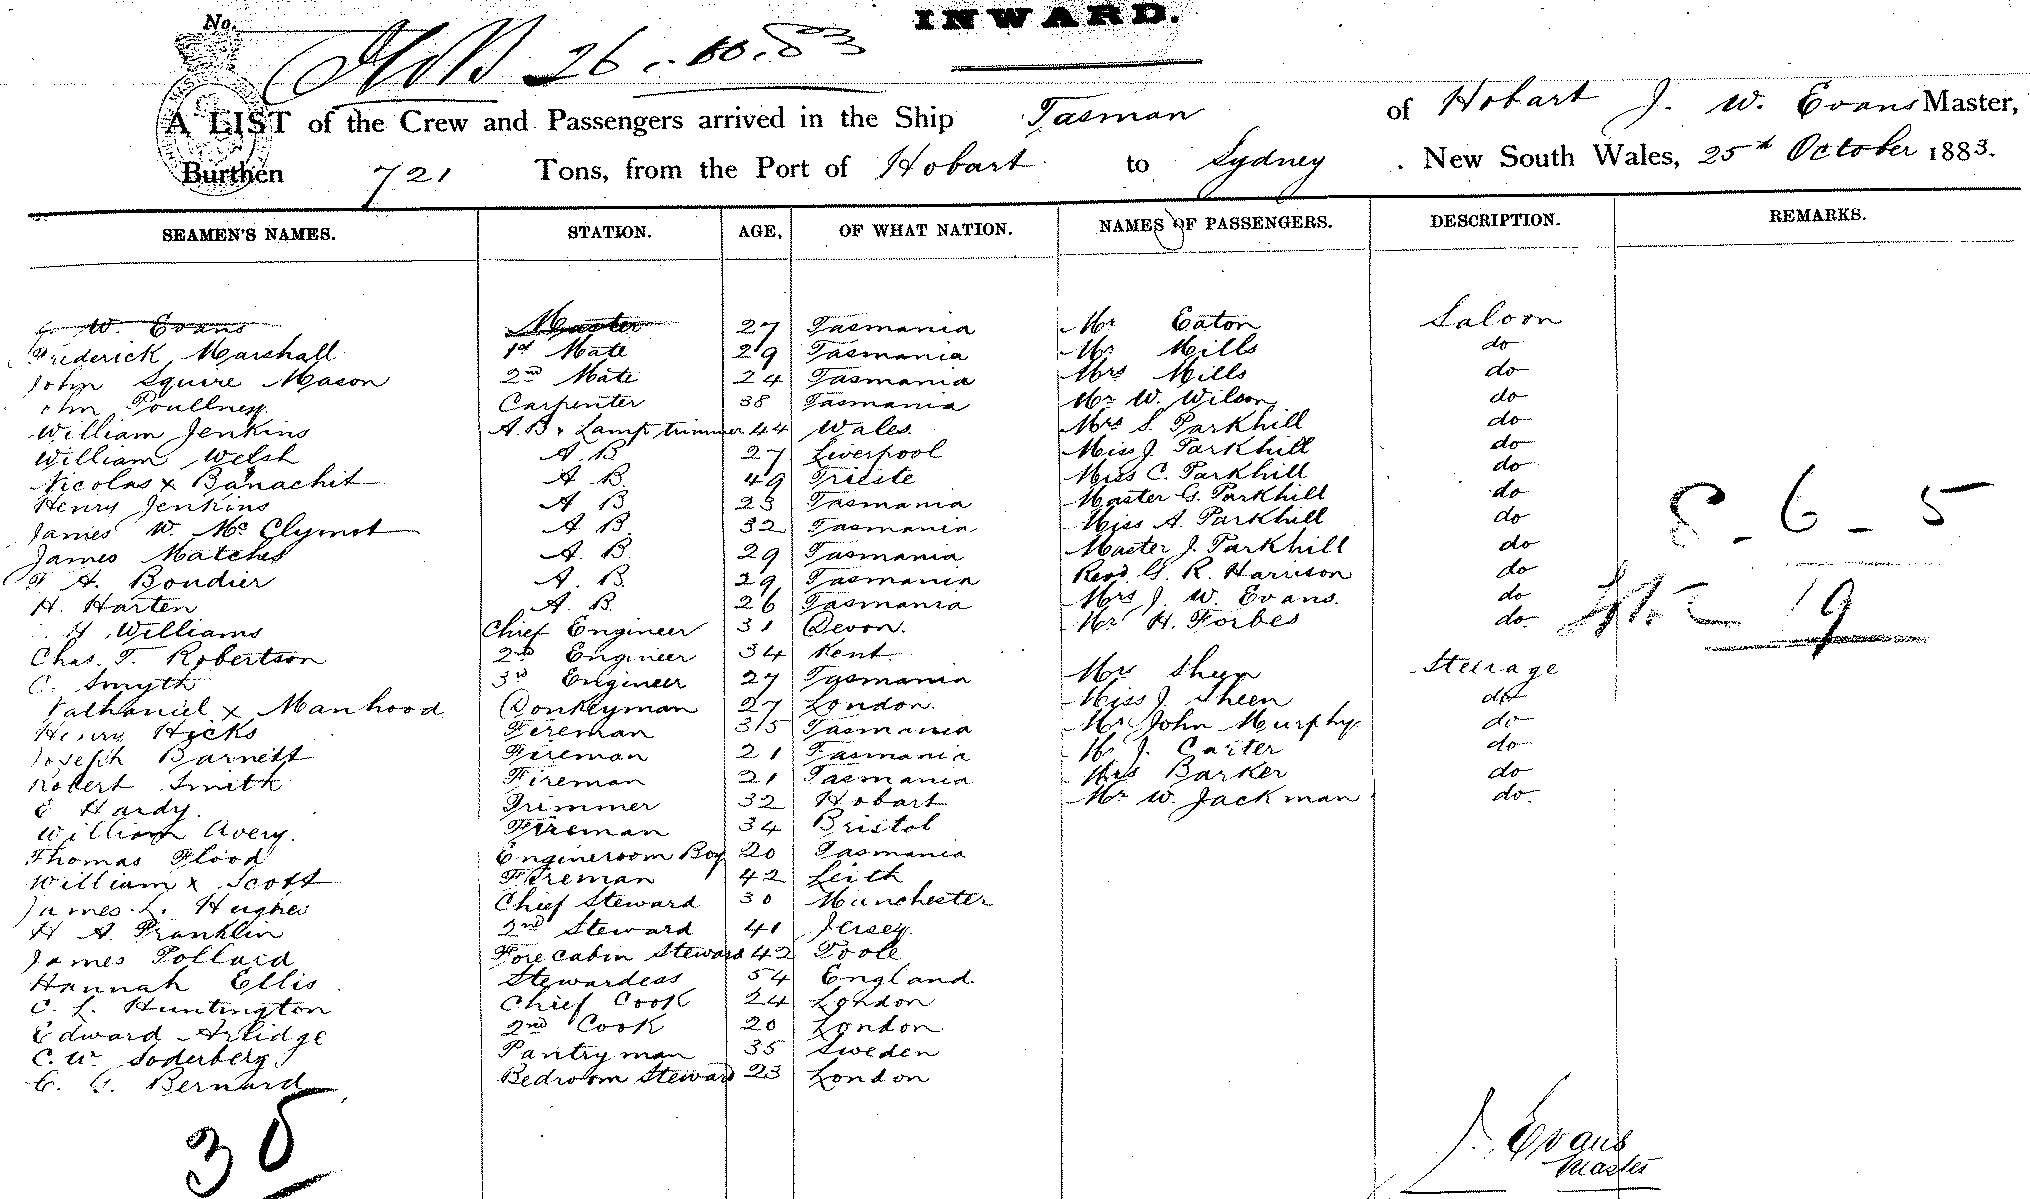 No.
INWARD.
26.10.83
A LIST of the Crew and Passengers arrived in the Ship Tasman of Hobart J. W. Evans Master,
Burthen 721 Tons, from the Port of Hobart to Sydney . New South Wales, 25th October 1883.
SEAMEN'S NAMES. STATION. AGE, OF WHAT NATION. NAMES OF PASSENGERS. DESCRIPTION. REMARKS.
W. Evans Master 27 Tasmania Mr Eaton Saloon
Frederick Marshall 1st Mate 29 Tasmania Mr Mills do
John Squire Mason 2nd Mate 24 Tasmania Mrs Mills do
John Poullney Carpenter 38 Tasmania Mr W. Wilson do
William Jenkins A. B & Lamp trimmer 44 Wales. Mrs S. Parkhill do
William Welsh A. B 27 Liverpool Miss J. Parkhill do
Nicolas x Banachit A B. 49 Trieste Miss C. Parkhill do
Henry Jenkins A B 23 Tasmania Master G. Parkhill do
James W. Mc Clymot A B. 32 Tasmania Miss A. Parkhill do
James Matches A. B. 29 Tasmania Master J. Parkhill do
A. Boudier A. B. 29 Tasmania Revd. G. R. Harrison do
H. Harten A. B. 26 Tasmania Mrs J. W. Evans. do
Williams Chief Engineer 31 Devon. Mr H. Forbes do.
Chas. T. Robertson 2nd Engineer 34 Kent
C. Smyth 3rd Engineer 27 Tasmania Mrs Sheen Steerage
Nathaniel x Manhood Donkeyman 27 London. Miss J. Sheen do
Henry Hicks Fireman 35 Tasmania Mr John Murphy do
Joseph Barnett Fireman 21 Tasmania J. Carter do
Robert Smith Fireman 21 Tasmania Mrs Barker do
E Hardy. Trimmer 32 Hobart Mr W. Jackman do.
William Avery. Fireman 34 Bristol
Thomas Flood Engineroom Boy 20 Tasmania
William x Scott Fireman 42 Leith
James L. Hughes Chief Steward 30 Manchester
H A. Franklin 2nd Steward 41 Jersey.
James Pollard Fore cabin Steward 42 Poole
Hannah Ellis Stewardess 54 England.
C. L. Huntington Chief Cook 24 London
Edward Arlidge 2nd Cook 20 London
C. W. Soderberg. Pantryman 35 Sweden
C. G. Bernard Bedroom Steward 23 London
8 - 6 - 5
19
30
J. Evans
Master